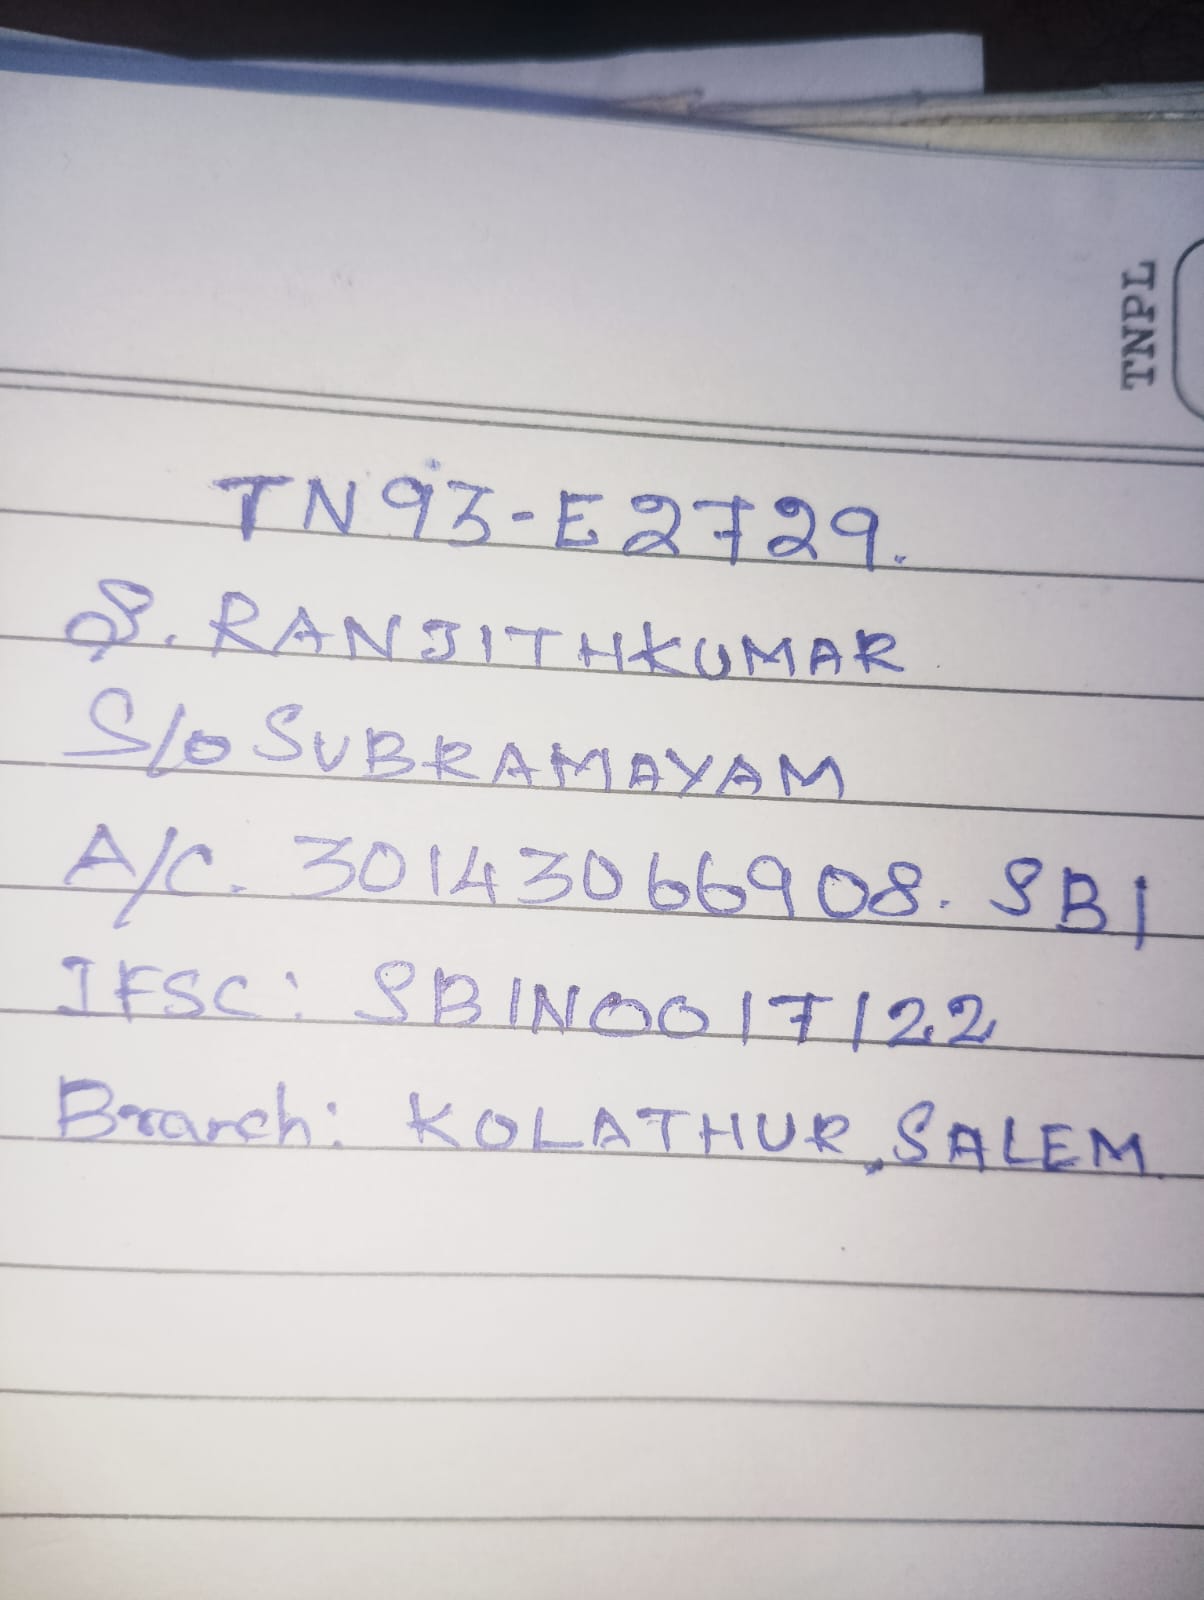 TNPL
TN93-E2729.
S. RANJITHKUMAR
S/o SUBRAMAYAM
A/C. 30143066908. SBI
IFSC: SBIN0017122
Branch: KOLATHUR, SALEM